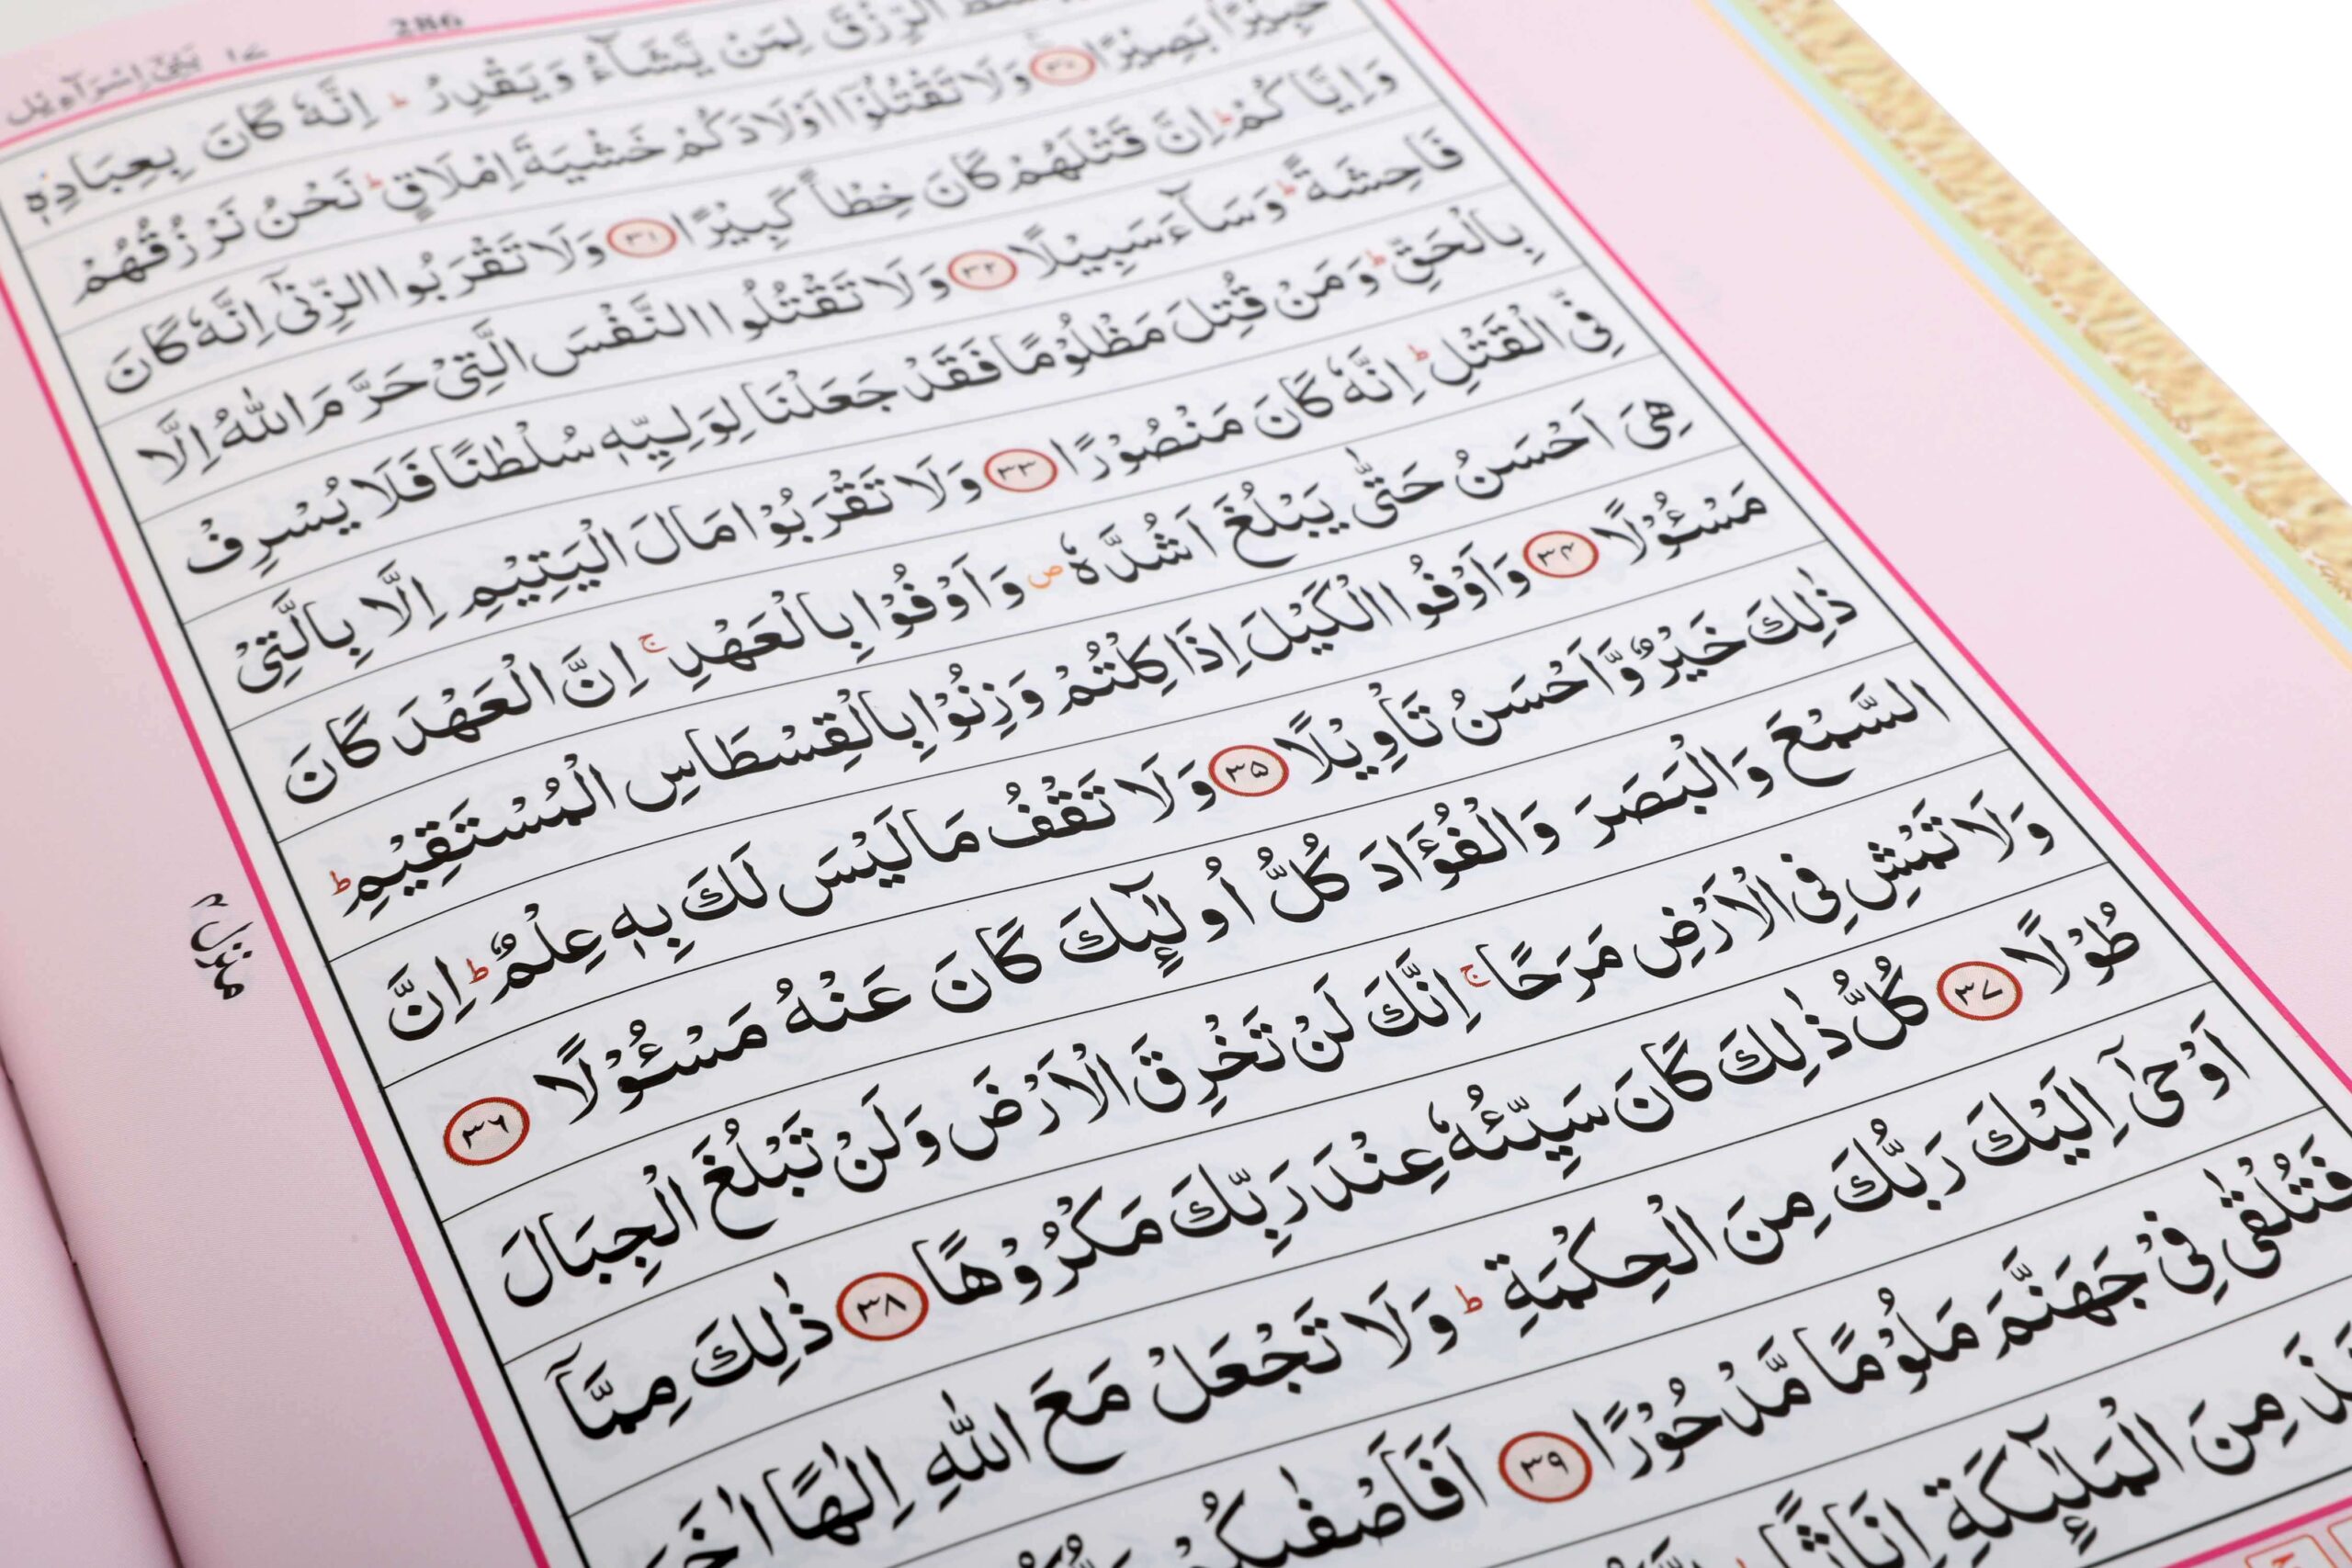 286
بَنِیْٓ اِسْرَآءِیْل ١٧
الرِّزْقَ لِمَنْ يَّشَآءُ وَيَقْدِرُ ؕ اِنَّهٗ كَانَ بِعِبَادِهٖ
خَبِيْرًاۢ بَصِيْرًا ٣٠ وَلَا تَقْتُلُوْۤا اَوْلَادَكُمْ خَشْيَةَ اِمْلَاقٍ ؕ نَحْنُ نَرْزُقُهُمْ
وَاِيَّاكُمْ ؕ اِنَّ قَتْلَهُمْ كَانَ خِطْاً كَبِيْرًا ٣١ وَلَا تَقْرَبُوا الزِّنٰٓى اِنَّهٗ كَانَ
فَاحِشَةً ؕ وَسَآءَ سَبِيْلًا ٣٢ وَلَا تَقْتُلُوا النَّفْسَ الَّتِىْ حَرَّمَ اللّٰهُ اِلَّا
بِالْحَقِّ ؕ وَمَنْ قُتِلَ مَظْلُوْمًا فَقَدْ جَعَلْنَا لِوَلِيِّهٖ سُلْطٰنًا فَلَا يُسْرِفْ
فِّى الْقَتْلِ ؕ اِنَّهٗ كَانَ مَنْصُوْرًا ٣٣ وَلَا تَقْرَبُوْا مَالَ الْيَتِيْمِ اِلَّا بِالَّتِىْ
هِىَ اَحْسَنُ حَتّٰى يَبْلُغَ اَشُدَّهٗ ص وَاَوْفُوْا بِالْعَهْدِ ۚ اِنَّ الْعَهْدَ كَانَ
مَسْئُوْلًا ٣٤ وَاَوْفُوا الْكَيْلَ اِذَا كِلْتُمْ وَزِنُوْا بِالْقِسْطَاسِ الْمُسْتَقِيْمِ ؕ
ذٰلِكَ خَيْرٌ وَّاَحْسَنُ تَاْوِيْلًا ٣٥ وَلَا تَقْفُ مَا لَيْسَ لَكَ بِهٖ عِلْمٌ ؕ اِنَّ
السَّمْعَ وَالْبَصَرَ وَالْفُؤَادَ كُلُّ اُولٰٓئِكَ كَانَ عَنْهُ مَسْئُوْلًا ٣٦
وَلَا تَمْشِ فِى الْاَرْضِ مَرَحًا ۚ اِنَّكَ لَنْ تَخْرِقَ الْاَرْضَ وَلَنْ تَبْلُغَ الْجِبَالَ
طُوْلًا ٣٧ كُلُّ ذٰلِكَ كَانَ سَيِّئُهٗ عِنْدَ رَبِّكَ مَكْرُوْهًا ٣٨ ذٰلِكَ مِمَّآ
اَوْحٰٓى اِلَيْكَ رَبُّكَ مِنَ الْحِكْمَةِ ؕ وَلَا تَجْعَلْ مَعَ اللّٰهِ اِلٰهًا اٰخَرَ
فَتُلْقٰى فِىْ جَهَنَّمَ مَلُوْمًا مَّدْحُوْرًا ٣٩ اَفَاَصْفٰىكُمْ
مِنَ الْمَلٰٓئِكَةِ اِنَاثًا
منزل ٤